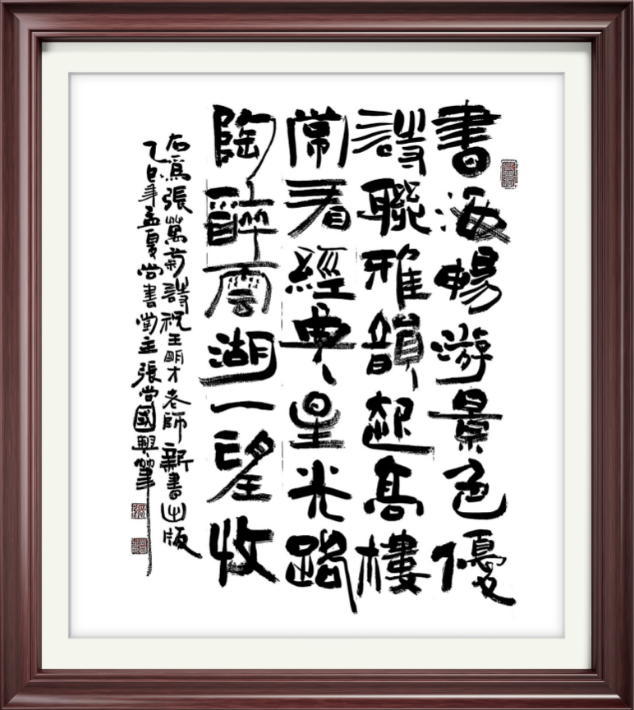 書海暢游景色優
詩聯雅韻起高樓
常看經典星光路
陶醉雲湖一望收
右爲張萬菊詩祝王明才老師新書出版
乙巳年孟夏尚書堂主張尚國興筆